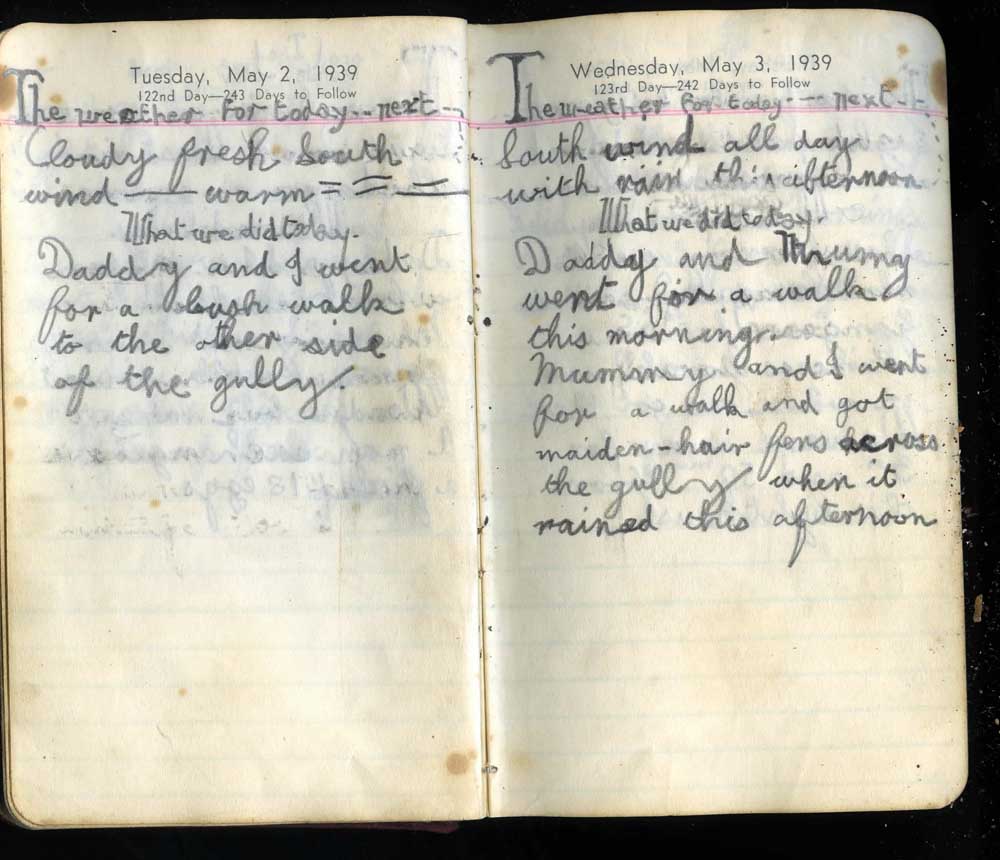 Tuesday, May 2, 1939
122nd Day—243 Days to Follow
The weather for today--next--
Cloudy fresh South
wind —— warm = = —
What we did today.
Daddy and I went
for a bush walk
to the other side
of the gully.
Wednesday, May 3, 1939
123rd Day—242 Days to Follow
The weather for today --- next--
South wind all day
with rain this afternoon
What we did today.
Daddy and Thrumy
went for a walk
this morning.
Mummy and I went
for a walk and got
maiden-hair fens across
the gully when it
rained this afternoon